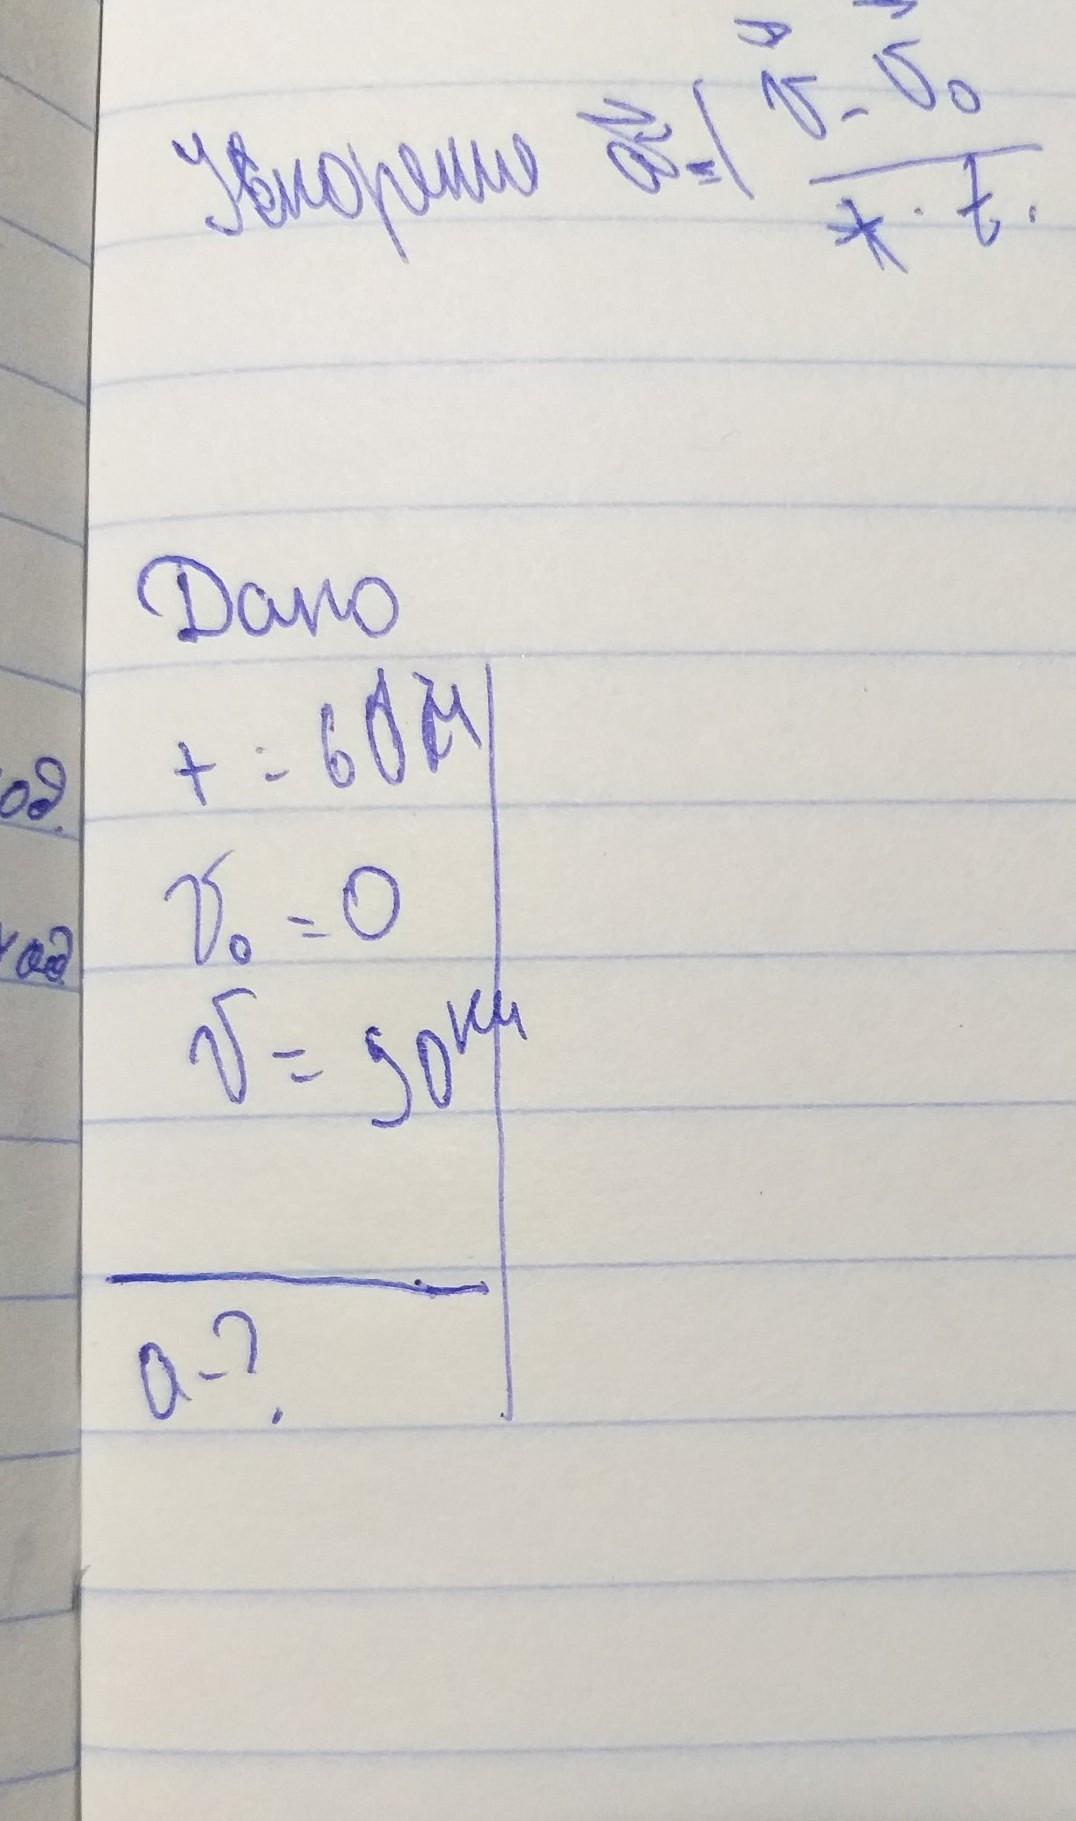 Ускорение a⃗ = v⃗ - v⃗₀ / t.
Дано
t = 60
v₀ = 0
v = 90 км
a - ?
од.
од